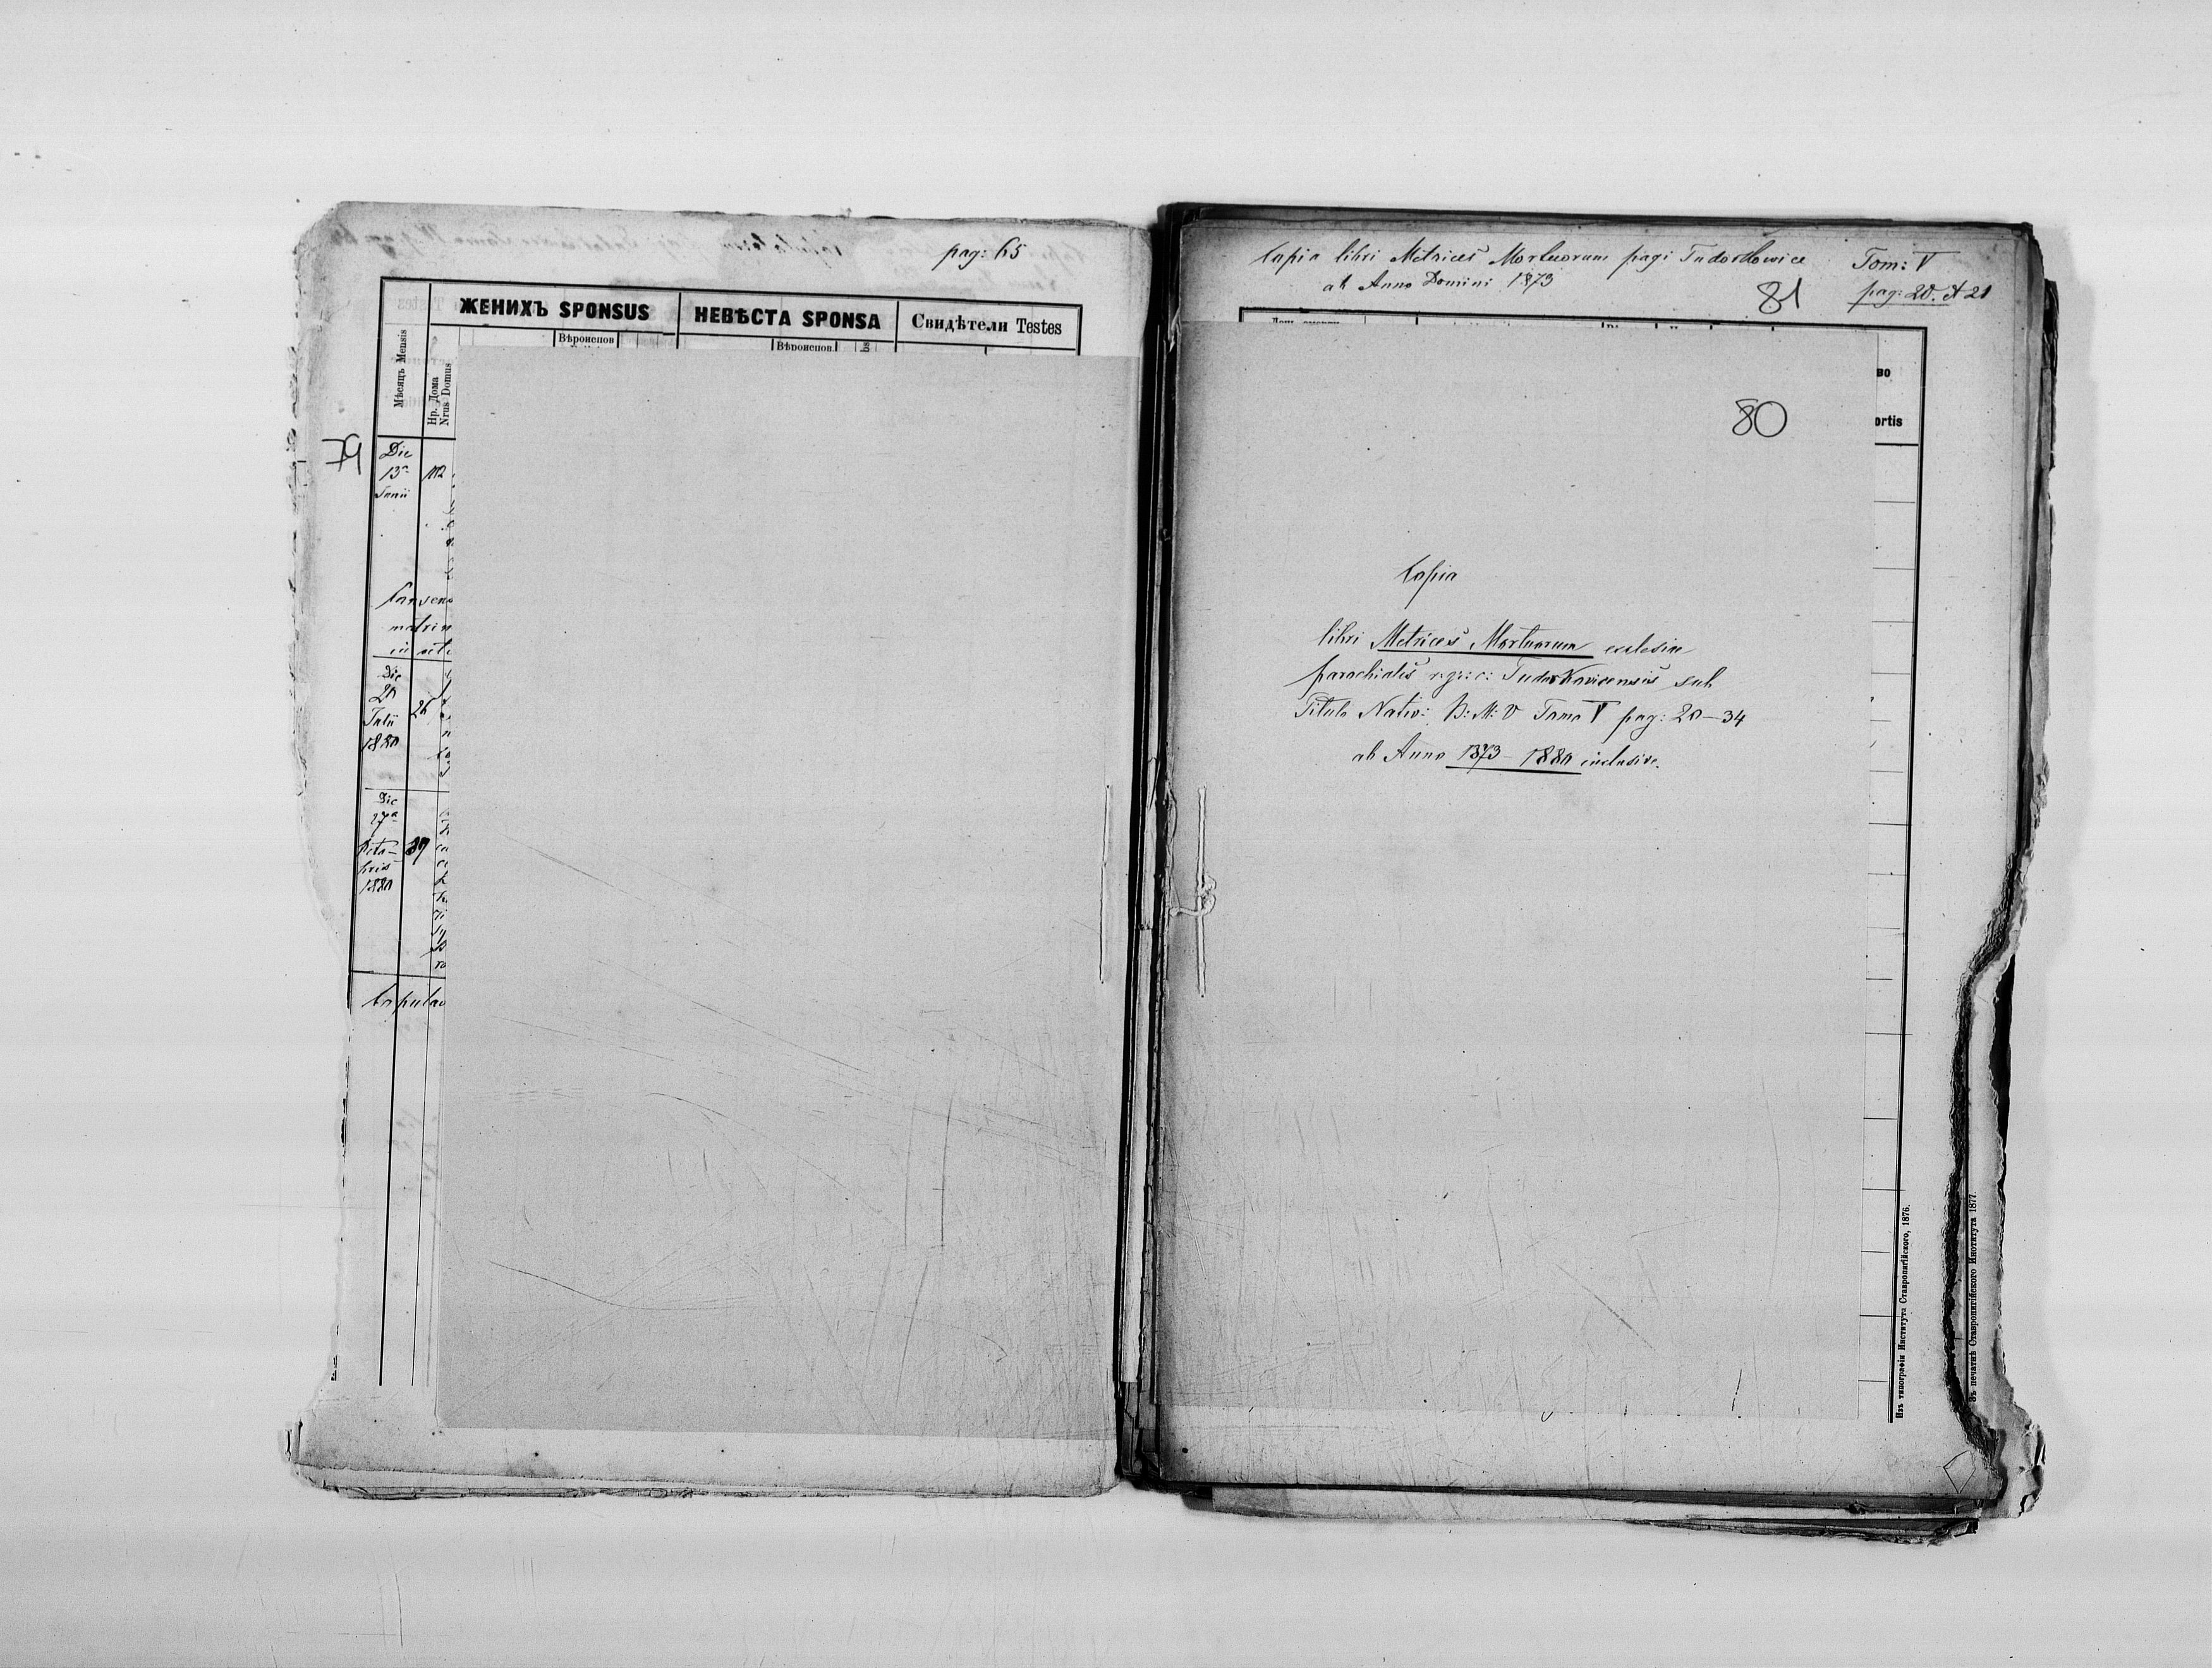 pag: 65
ЖЕНИХЪ SPONSUS
НЕВѢСТА SPONSA
Свидѣтели Testes
Мѣсяцъ Mensis
Нр. Дома
Nrus Domus
Вѣроиспов
Вѣроиспов.
79
Die
13ª
Junii
112
Consens
matrim
Die
20
Julii
1880
26
Die
27ª
Octo-
bris
1880
89
Copulav
Copia libri Metrices Mortuorum pagi Tudorkowice
ab Anno Domini 1873
Tom: V
pag: 20. et 21
81
во
ortis
80
Copia
libri Metrices Mortuorum ecclesiae
parochialis r: gr: c: Tudorkovicensis sub
Titulo Nativ: B: M: V Tomo V pag: 20–34
ab Anno 1873 – 1880 inclusive.
Изъ типографіи Института Ставропигійского, 1876.
Зъ печатнѣ Ставропигійского Института 1877.